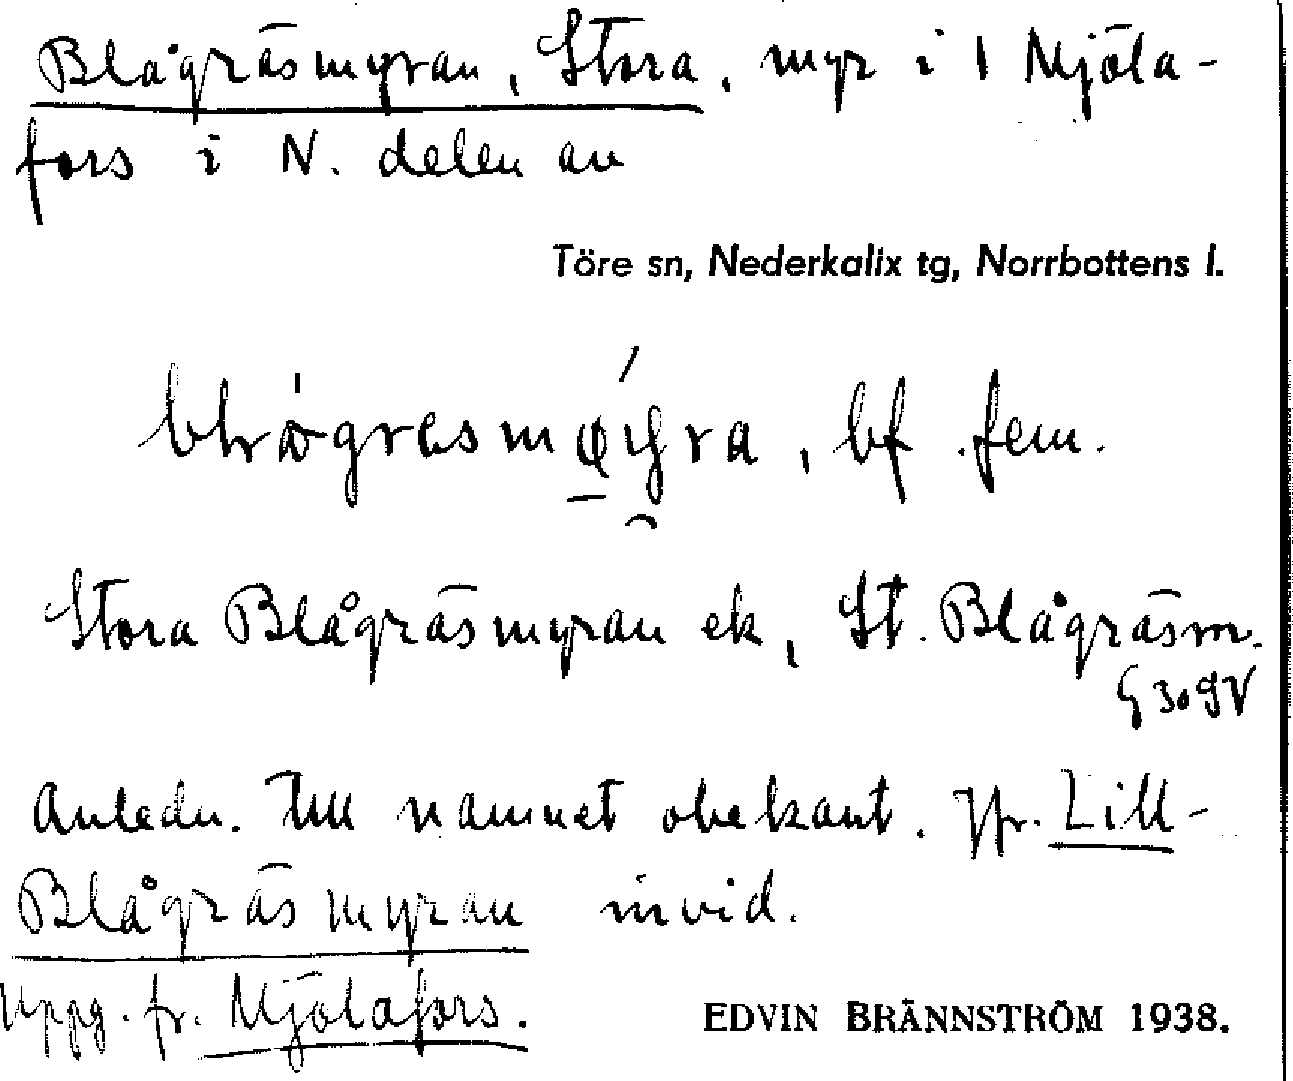 Blågräsmyran, Stora, myr i 1 Mjöla-
fors i N. delen av
Töre sn, Nederkalix tg, Norrbottens l.
bf. fem.
Stora Blågräsmyran ek, St. Blågräsm.
G 30 gV
Anledn. till namnet obekant. Jfr. Lill-
Blågräsmyran invid.
Uppg. fr. Mjölafors.
EDVIN BRÄNNSTRÖM 1938.